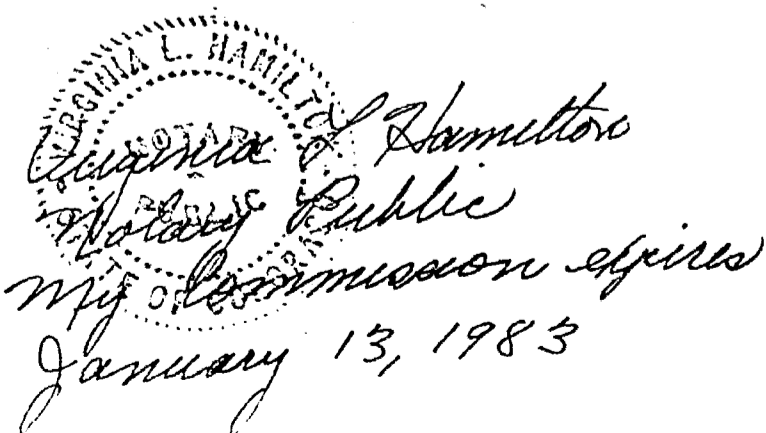 VIRGINIA L. HAMILTON
NOTARY
PUBLIC
STATE OF COLORADO
Virginia L Hamilton
Notary Public
My Commission expires
January 13, 1983